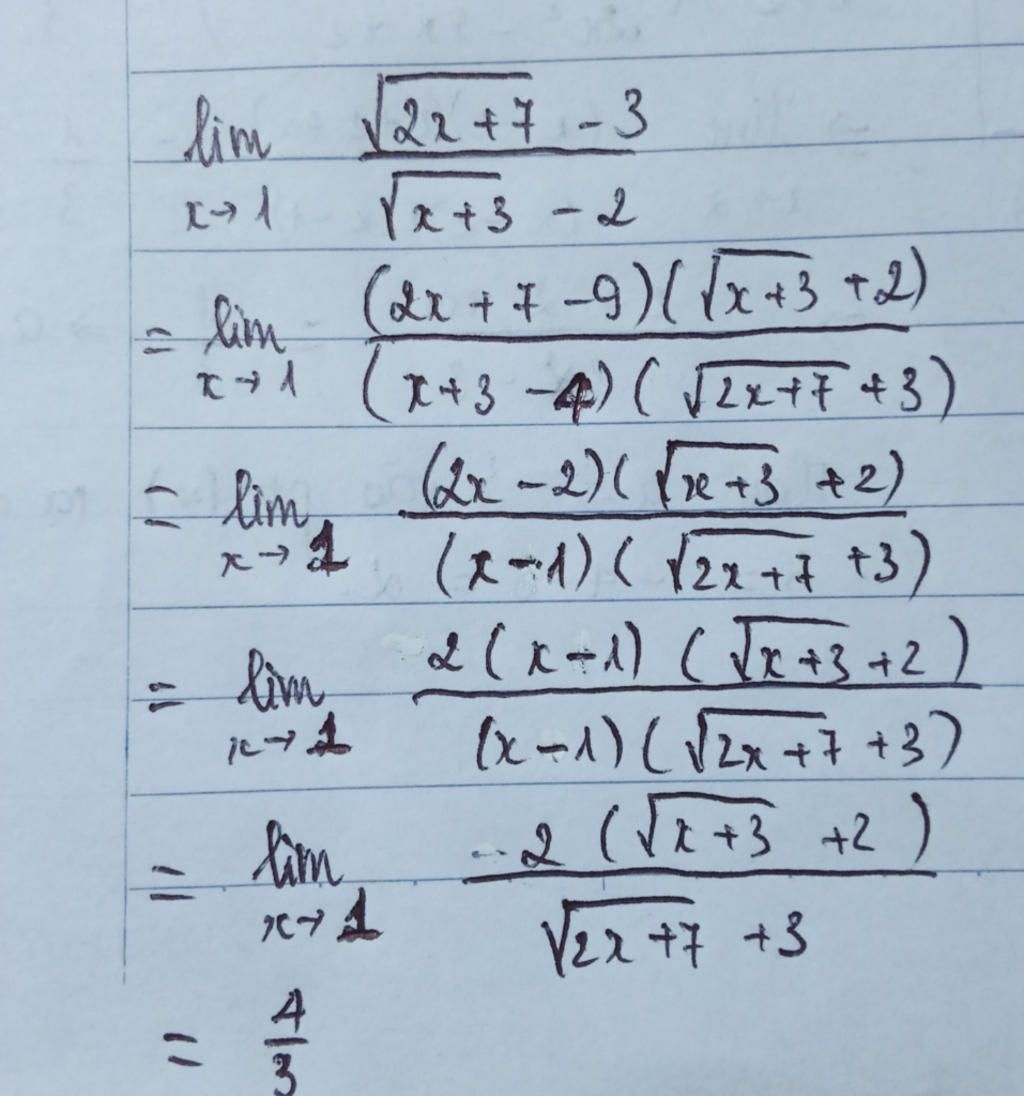 lim x→1 (√(2x+7) - 3) / (√(x+3) - 2)
= lim x→1 ((2x+7-9)(√(x+3) +2)) / ((x+3-4)(√(2x+7) +3))
= lim x→1 ((2x-2)(√(x+3) +2)) / ((x-1)(√(2x+7) +3))
= lim x→1 (2(x-1)(√(x+3) +2)) / ((x-1)(√(2x+7) +3))
= lim x→1 (2(√(x+3) +2)) / (√(2x+7) +3)
= 4/3